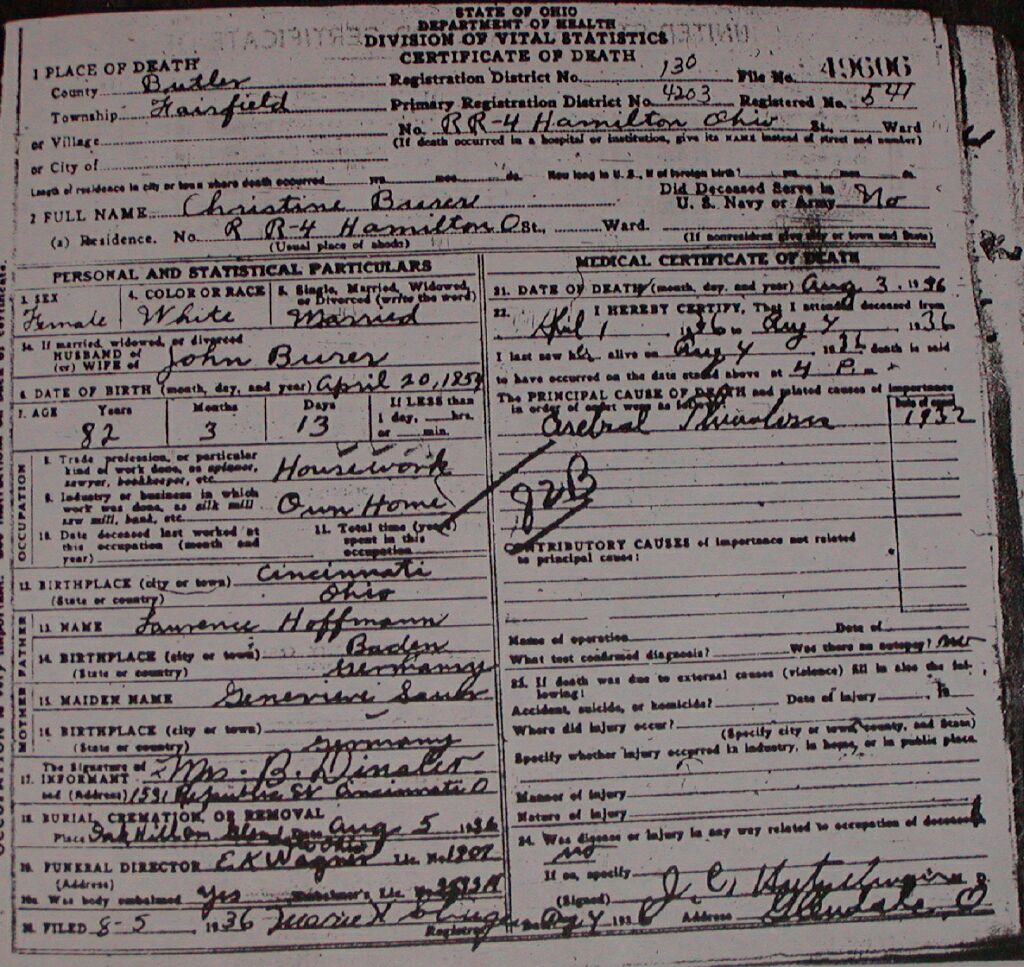 STATE OF OHIO
DEPARTMENT OF HEALTH
DIVISION OF VITAL STATISTICS
CERTIFICATE OF DEATH
1 PLACE OF DEATH
County Butler
Registration District No. 130 File No. 49606
Township Fairfield
Primary Registration District No. 4203 Registered No. 541
or Village
No. RR-4 Hamilton Ohio St., Ward
(If death occurred in a hospital or institution, give its NAME instead of street and number)
or City of
Length of residence in city or town where death occurred yrs. mos. ds. How long in U. S., if of foreign birth? yrs. mos. ds.
2 FULL NAME Christine Burer
Did Deceased Serve in
U. S. Navy or Army No
(a) Residence. No. R R-4 Hamilton O St., Ward.
(Usual place of abode) (If nonresident give city or town and State)
PERSONAL AND STATISTICAL PARTICULARS
3. SEX 4. COLOR OR RACE 5. Single, Married, Widowed,
or Divorced (write the word)
Female White Married
5a. If married, widowed, or divorced
HUSBAND of
(or) WIFE of John Burer
6. DATE OF BIRTH (month, day, and year) April 20, 1854
7. AGE Years Months Days If LESS than
1 day, hrs.
or min.
82 3 13
OCCUPATION
8. Trade, profession, or particular
kind of work done, as spinner,
sawyer, bookkeeper, etc. Housework
9. Industry or business in which
work was done, as silk mill
saw mill, bank, etc. Own Home
10. Date deceased last worked at
this occupation (month and
year)
11. Total time (years)
spent in this
occupation
12. BIRTHPLACE (city or town) Cincinnati
(State or country) Ohio
FATHER
13. NAME Laurence Hoffmann
14. BIRTHPLACE (city or town) Baden
(State or country) Germany
MOTHER
15. MAIDEN NAME Genevieve Sauer
16. BIRTHPLACE (city or town)
(State or country) Germany
17. The Signature of
INFORMANT Mrs. B.
and (Address) 1531 Republic St Cincinnati O
18. BURIAL, CREMATION, OR REMOVAL
Place Oak Hill Date Aug 5 1936
19. FUNERAL DIRECTOR E K Wagner Lic. No. 1907
(Address)
19a. Was body embalmed Yes Embalmer's Lic. No.
20. FILED 8-5 1936
Registrar
MEDICAL CERTIFICATE OF DEATH
21. DATE OF DEATH (month, day, and year) Aug 3, 1936
22. I HEREBY CERTIFY, That I attended deceased from
April 1 1936 to Aug 4 1936
I last saw her alive on Aug 4 1936 death is said
to have occurred on the date stated above at 4 P. m
The PRINCIPAL CAUSE OF DEATH and related causes of importance
in order of onset were as follows: Date of onset
1932
JVB
CONTRIBUTORY CAUSES of importance not related
to principal cause:
Name of operation Date of
What test confirmed diagnosis? Was there an autopsy? no
23. If death was due to external causes (violence) fill in also the fol-
lowing:
Accident, suicide, or homicide? Date of injury 19
Where did injury occur?
(Specify city or town, county, and State)
Specify whether injury occurred in industry, in home, or in public place.
Manner of injury
Nature of injury
24. Was disease or injury in any way related to occupation of deceased
no
If so, specify
(Signed) J. C. M. D.
Aug 4 1936 Address Glendale, O